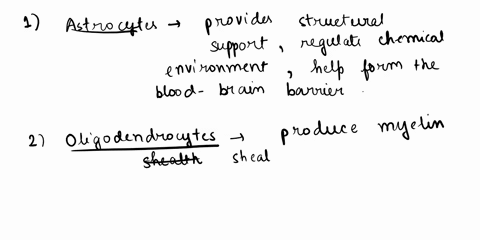 1) Astrocytes → provides structural
support, regulate chemical
environment, help form the
blood-brain barrier.
2) Oligodendrocytes → produce myelin
shealth sheal